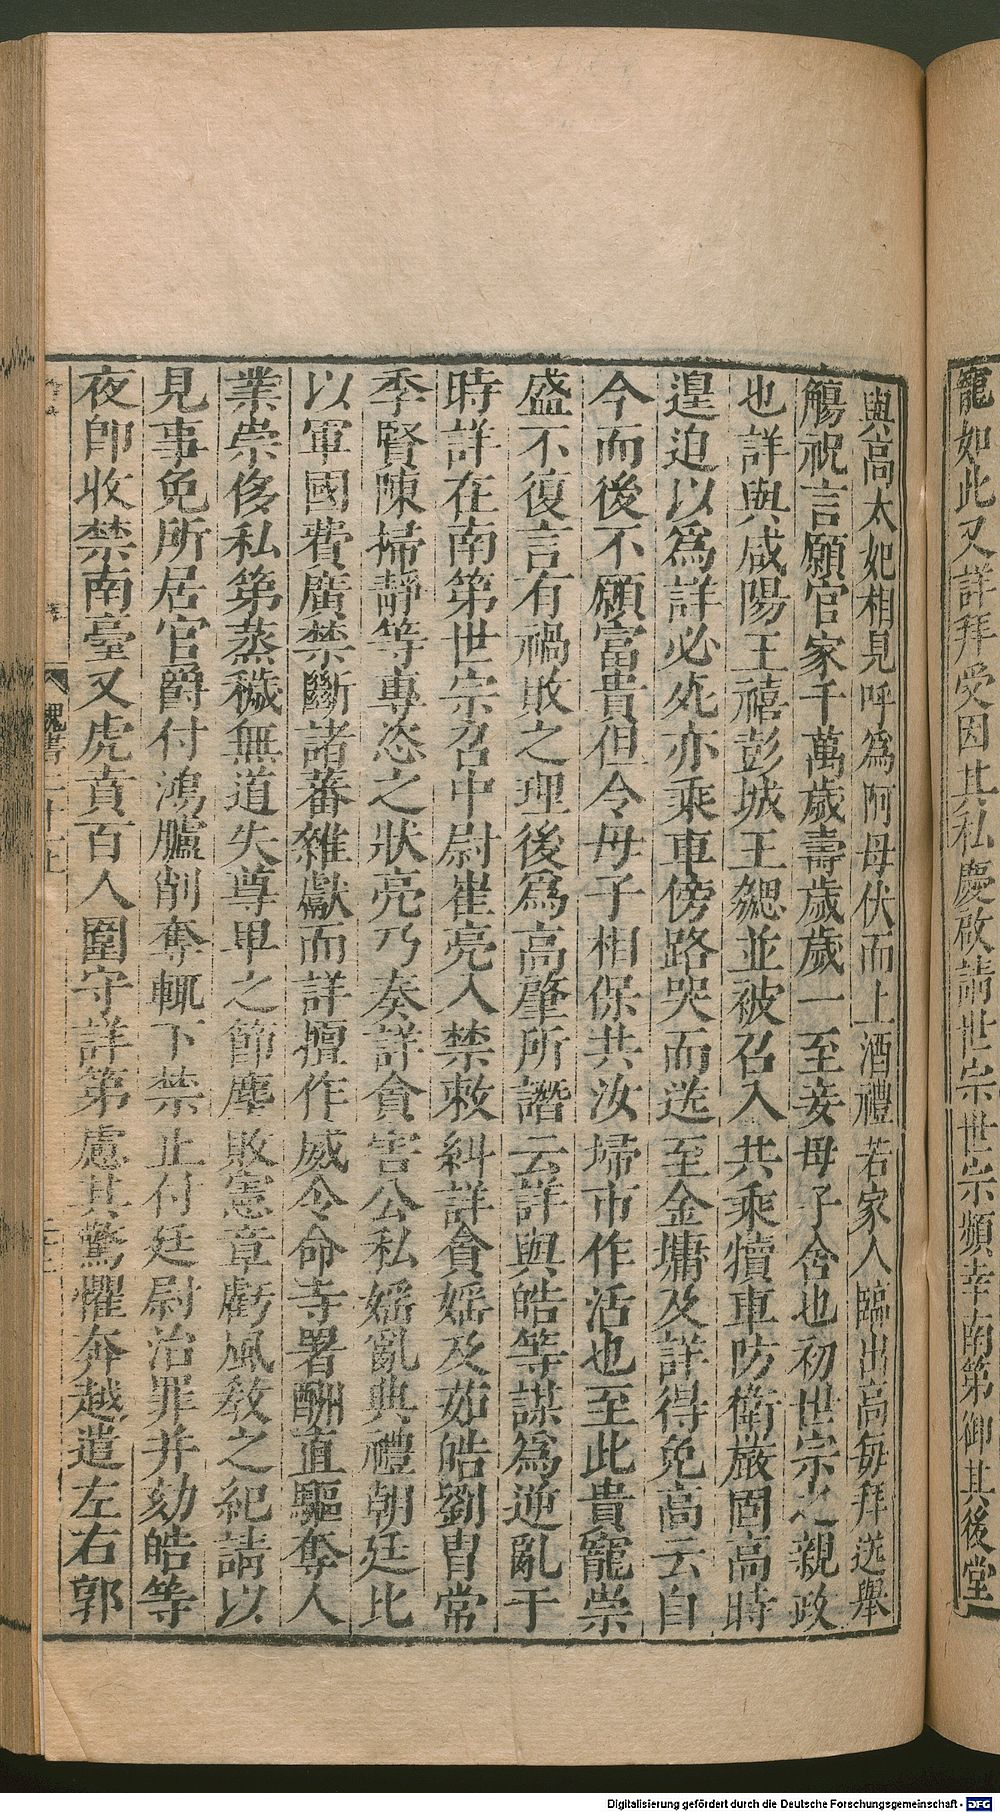 寵如此又詳拜受因其私慶啟請世宗世宗頻幸南第御其後堂
與高太妃相見呼為阿母伏而上酒禮若家人臨出高每拜送舉
觴祝言願官家千萬歲壽歲歲一至妾母子舍也初世宗之親政
也詳與咸陽王禧彭城王勰並被召入共乘犢車防衛嚴固高時
遑迫以為詳必死亦乘車傍路哭而送至金墉及詳得免高云自
今而後不願富貴但令母子相保共汝埽市作活也至此貴寵崇
盛不復言有禍敗之理後為高肇所譖云詳與皓等謀為逆亂于
時詳在南第世宗召中尉崔亮入禁敕糾詳貪婬及茹皓劉胄常
季賢陳掃靜等專恣之狀亮乃奏詳貪害公私婬亂典禮朝廷比
以軍國費廣禁斷諸蕃雜獻而詳擅作威令命寺署酬直驅奪人
業崇侈私第蒸穢無道失尊卑之節塵敗憲章虧風教之紀請以
見事免所居官爵付鴻臚削奪輒下禁止付廷尉治罪并劾皓等
夜即收禁南臺又虎賁百人圍守詳第慮其驚懼奔越遣左右郭
魏書二十一上
Digitalisierung gefördert durch die Deutsche Forschungsgemeinschaft - DFG